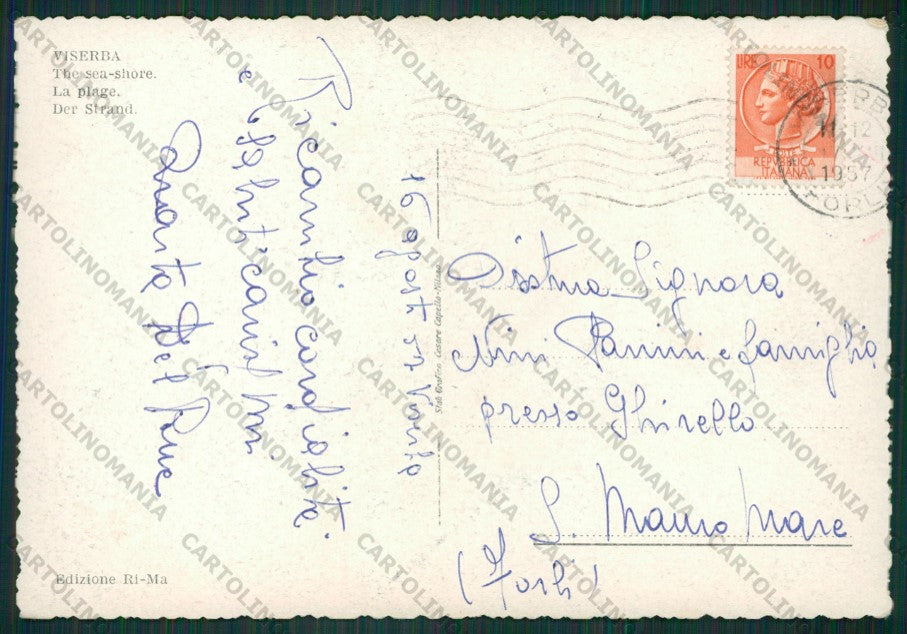 VISERBA
The sea-shore.
La plage.
Der Strand.
LIRE 10
POSTE
REPUBBLICA
ITALIANA
12
1957
FORLI
16 agost 57 Viserba
Ricambio cordialità
e
Quarto Del Rue
Stab Grafico Cesare Capello-Milano
Signora
Nini Panini e famiglia
presso Ghirello
S. Mauro Mare
(Forlì)
Edizione Ri-Ma
CARTOLINOMANIA